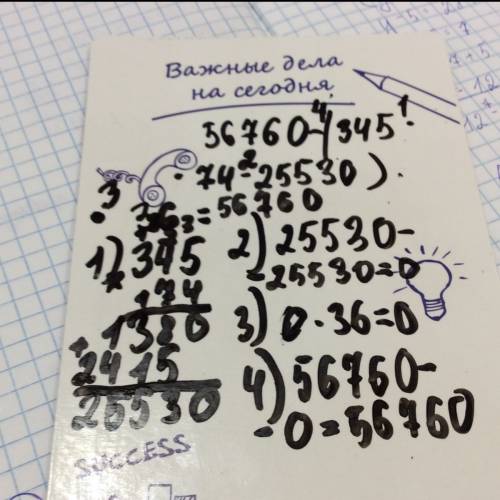 Важные дела
на сегодня
4 1
56760-(345·
2
·74-25530)·
3
·36=56760
1) 345
74
1380
2415
25530
2) 25530-
-25530=0
3) 0·36=0
4) 56760-
-0=56760
SUCCESS